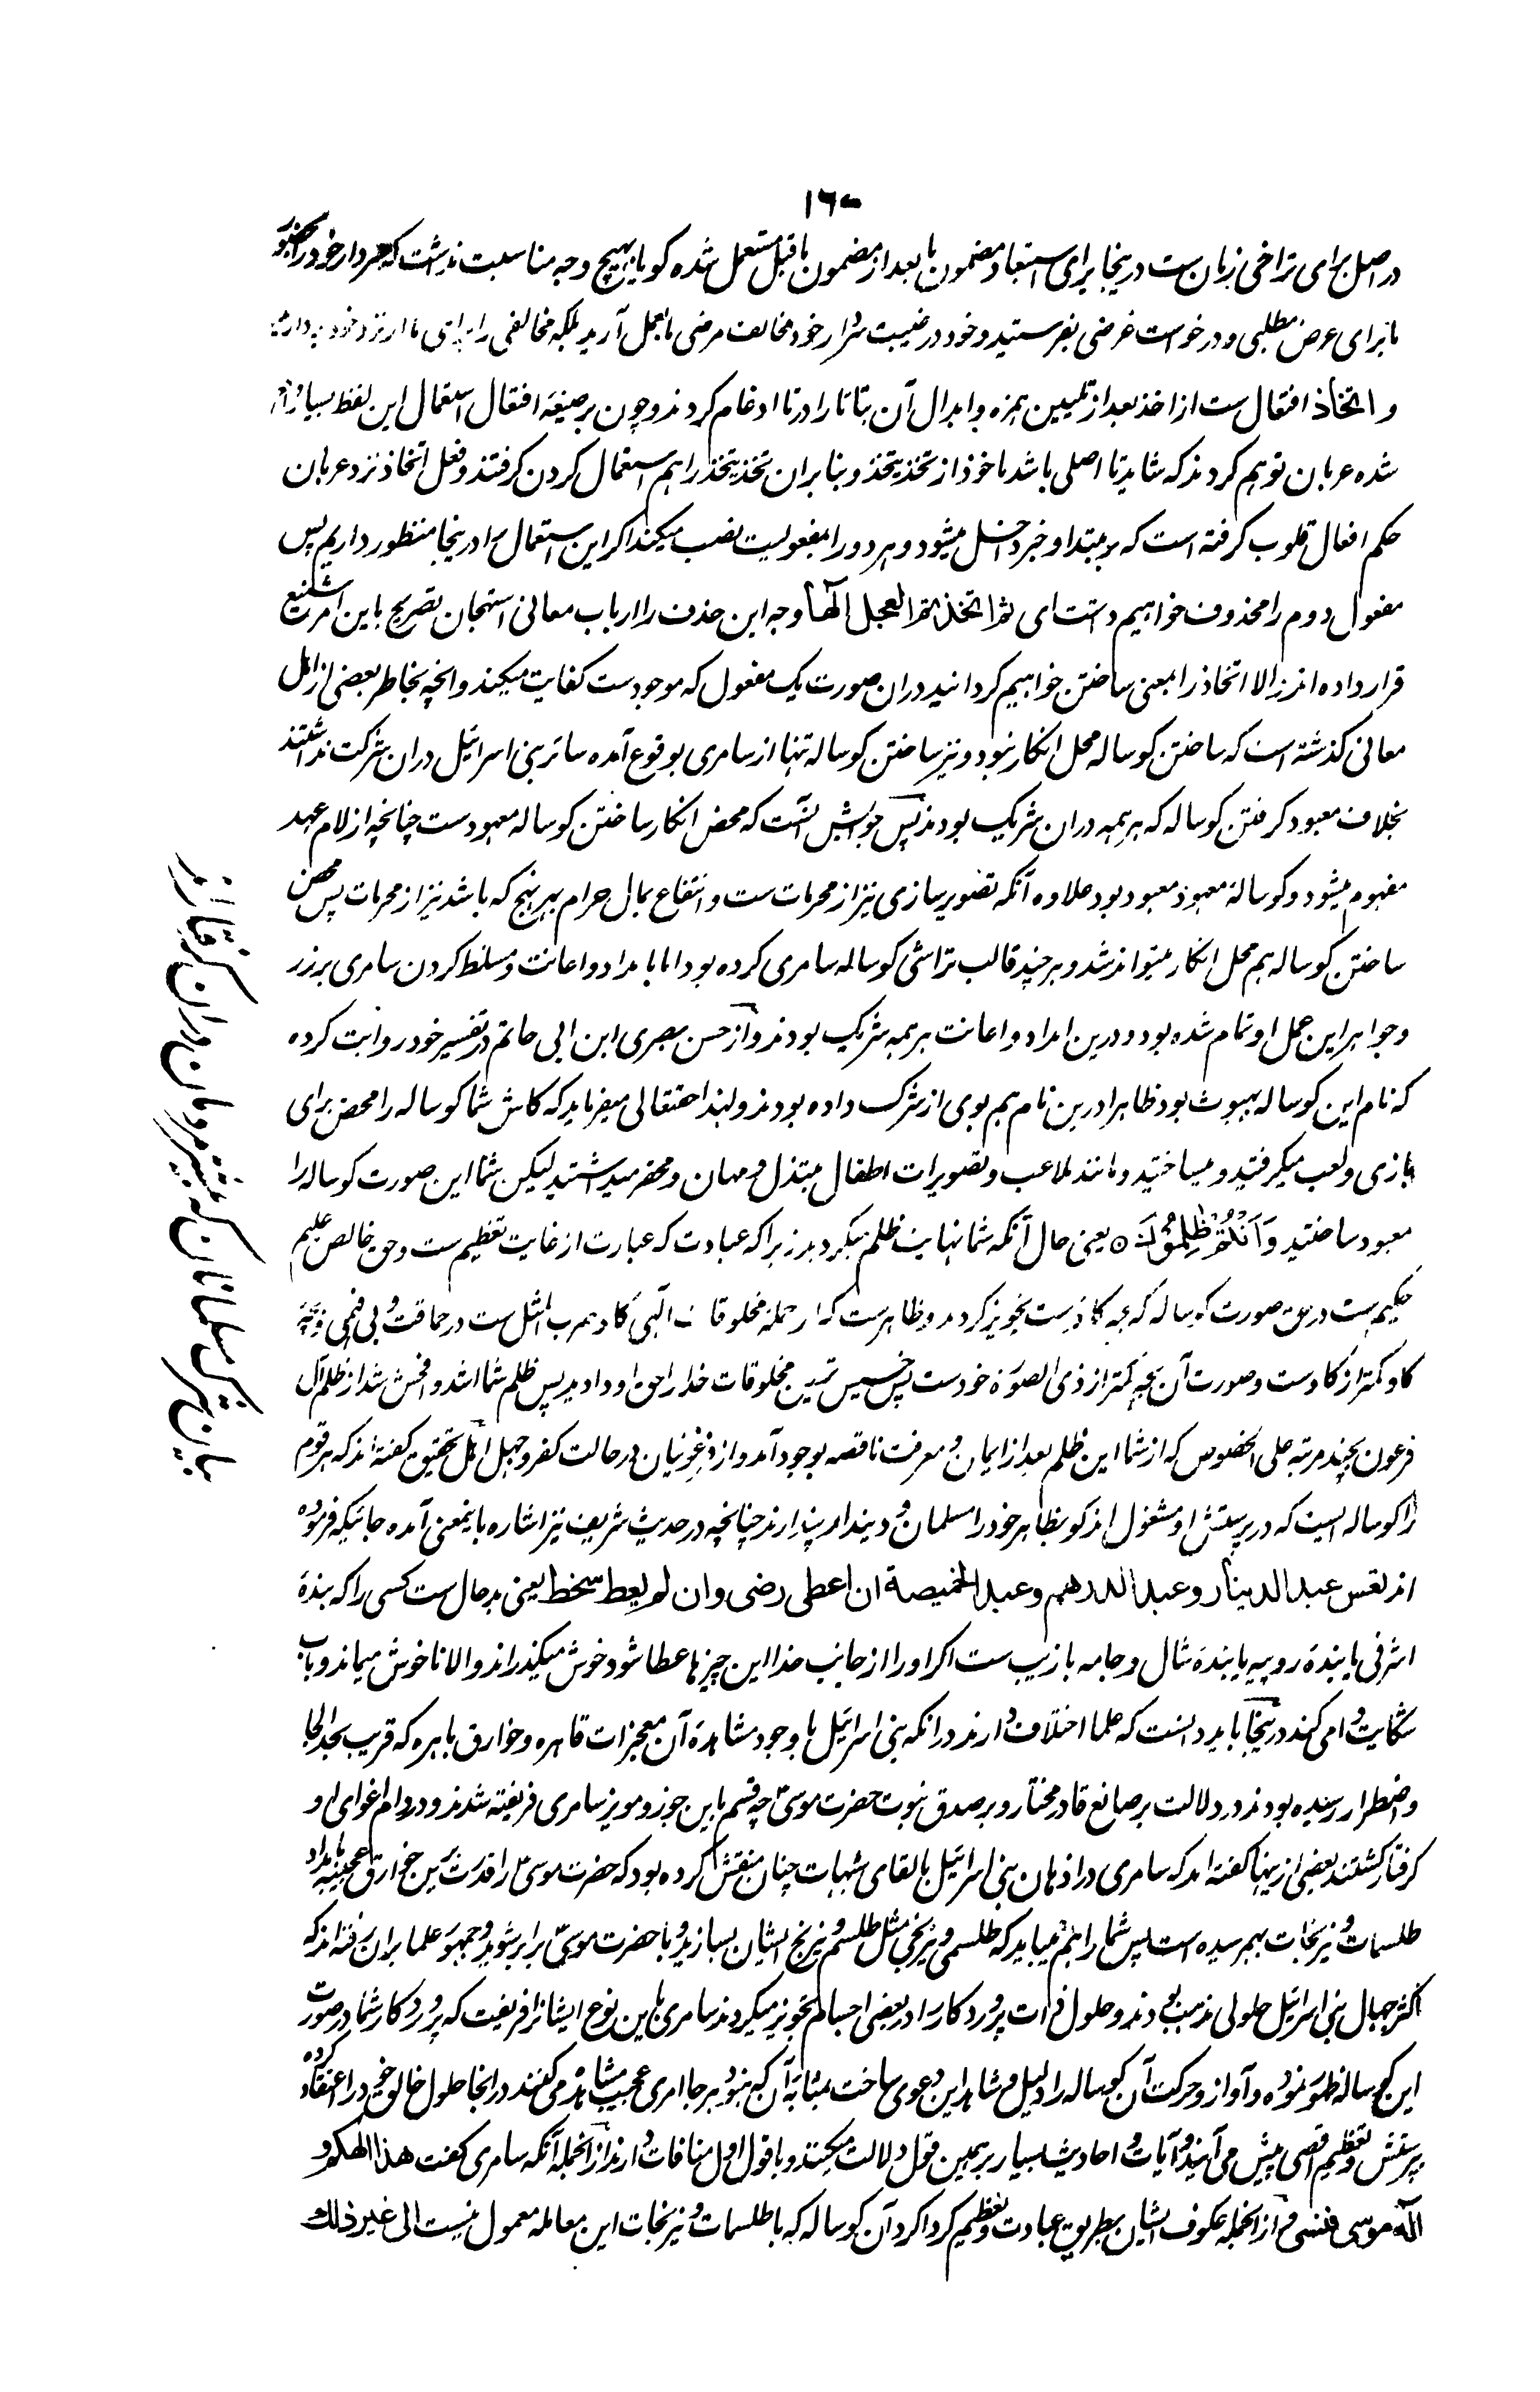 ١٦٠
در اصل برای تراخی زمان ست درینجا برای استبعاد مضمون مابعد از مضمون ماقبل مستعمل شده گویا بهیچ وجه مناسبت نداشت که سردار خود را بحضور
ما برای عرض مطلبی و درخواست غرضی بفرستید و خود در غیبت سردار خود مخالف مرضی ما بعمل آرید بلکه مخالفی را برای ما از نزد خود
و اتخاذ افتعال ست از اخذ بعد از تلیین همزه و ابدال آن بتا تا را در تا ادغام کردند و چون بر صیغهٔ افتعال استعمال این لفظ بسیار
شده عربان توهم کردند که شاید تا اصلی باشد ماخوذ از تخذ یتخذ و بنابران تخذ یتخذ را هم استعمال کردن گرفتند و فعل اتخاذ نزد عربان
حکم افعال قلوب گرفته است که بر مبتدا و خبر داخل میشود و هر دو را بمفعولیت نصب میکند اگر این استعمال را درینجا منظور داریم پس
مفعول دوم را محذوف خواهیم دانست ای ثم اتخذتم العجل الٰهاً و وجه این حذف را ارباب معانی استهجان تصریح باین امر شنیع
قرار داده اند و الا اتخاذ را بمعنی ساختن خواهیم گردانید دران صورت یک مفعول که موجودست کفایت میکند و آنچه بخاطر بعضی از اهل
معانی گذشته است که ساختن گوساله محل انکار نبود و نیز ساختن گوساله تنها از سامری بوقوع آمده سائر بنی اسرائیل دران شرکت نداشتند
بخلاف معبود گرفتن گوساله که همه دران شریک بودند پس جوابش آنست که محض انکار ساختن گوساله معهودست چنانچه از لام عهد
مفهوم میشود و گوسالهٔ معهود معبود بود علاوه آنکه تصویر سازی نیز از محرمات ست و انتفاع بمال حرام بهر نهج که باشد نیز از محرمات پس محض
ساختن گوساله هم محل انکار میتواند شد و هر چند قالب تراشی گوساله سامری کرده بود اما بامداد و اعانت و مسلط کردن سامری بر زر
و جواهر این عمل او تمام شده بود و درین امداد و اعانت همه شریک بودند و از حسن بصری ابن ابی حاتم در تفسیر خود روایت کرده
که نام این گوساله بهبوث بود ظاهرا درین نام هم بوی از شرک داده بودند و لهذا حقتعالی میفرماید که کاش شما گوساله را محض برای
بازی و لعب میگرفتید و میساختید و مانند ملاعب و تصویرات اطفال مبتذل و مهان و محقر میداشتید لیکن شما این صورت گوساله را
معبود ساختید وَاَنْتُمْ ظٰلِمُوْنَ ۝ یعنی حال آنکه شما نهایت ظلم میکردید زیرا که عبادت که عبارت از غایت تعظیم ست و حق خالص علیم
حکیم ست در حق صورت گوساله که بچهٔ گاوست تجویز کردید و ظاهرست که از جملهٔ مخلوقات الٰهی گاو ضرب المثل ست در حماقت و بی فهمی و بچهٔ
گاو کمتر از گاوست و صورت آن بچه کمتر از ذی الصورة خودست پس خسیس ترین مخلوقات خدا را حق او دادید پس ظلم شما اشد و افحش شد از ظلم آل
فرعون بچند مرتبه علی الخصوص که از شما این ظلم بعد از ایمان و معرفت ناقصه بوجود آمد و از فرعونیان در حالت کفر و جهل اهل تحقیق گفته اند که هر قوم
را گوساله ایست که در پرستش او مشغول اند گو بظاهر خود را مسلمان و دیندار پندارند چنانچه در حدیث شریف نیز اشاره باینمعنی آمده جائیکه فرموده
اند تعس عبد الدینار و عبد الدرهم و عبد الخمیصة ان اعطی رضی و ان لم یعط سخط یعنی بدحال ست کسی را که بندهٔ
اشرفی یا بندهٔ روپیه یا بندهٔ شال و جامه بازیب ست اگر او را از جانب خدا این چیزها عطا شود خوش میگذراند و الا ناخوش میماند و باب
شکایت وا می کند درینجا باید دانست که علما اختلاف دارند درانکه بنی اسرائیل با وجود مشاهدهٔ آن معجزات قاهره و خوارق باهره که قریب بحد الجا
و اضطرار رسیده بودند در دلالت بر صانع قادر مختار و بر صدق نبوت حضرت موسیٰ چه قسم باین جوز و مویز سامری فریفته شدند و در دام اغوای او
گرفتار گشتند بعضی ازینها گفته اند که سامری در اذهان بنی اسرائیل بالقای شبهات چنان منقش کرده بود که حضرت موسیٰ را قدرت برین خوارق عجیبه بامداد
طلسمات و نیرنجات بهمرسیده است پس شما را هم میباید که طلسمی و نیرنجی مثل طلسم و نیرنج ایشان بسازید و با حضرت موسیٰ برابر شوید و جمهور علما بران رفته اند که
اکثر جهال بنی اسرائیل حلولی مذهب بودند و حلول ذات پروردگار را در بعضی اجسام تجویز میکردند سامری باین نوع ایشانرا فریفت که پروردگار شما در صورت
این گوساله ظهور نموده و آواز و حرکت آن گوساله را دلیل و شاهد این دعوی ساخت بمثابهٔ آن که هنود هر جا امری عجیب مشاهده می کنند درانجا حلول خالق خود را اعتقاد کرده
پرستش و تعظیم اقصی پیش می آیند و آیات و احادیث بسیار بر همین قول دلالت میکنند و با قول اول منافات دارند از انجمله آنکه سامری گفت هذا الهکم و
الٰه موسی فنسی و از انجمله عکوف ایشان بطریق عبادت و تعظیم گرداگرد آن گوساله که با طلسمات و نیرنجات این معامله معمول نیست الی غیر ذلک